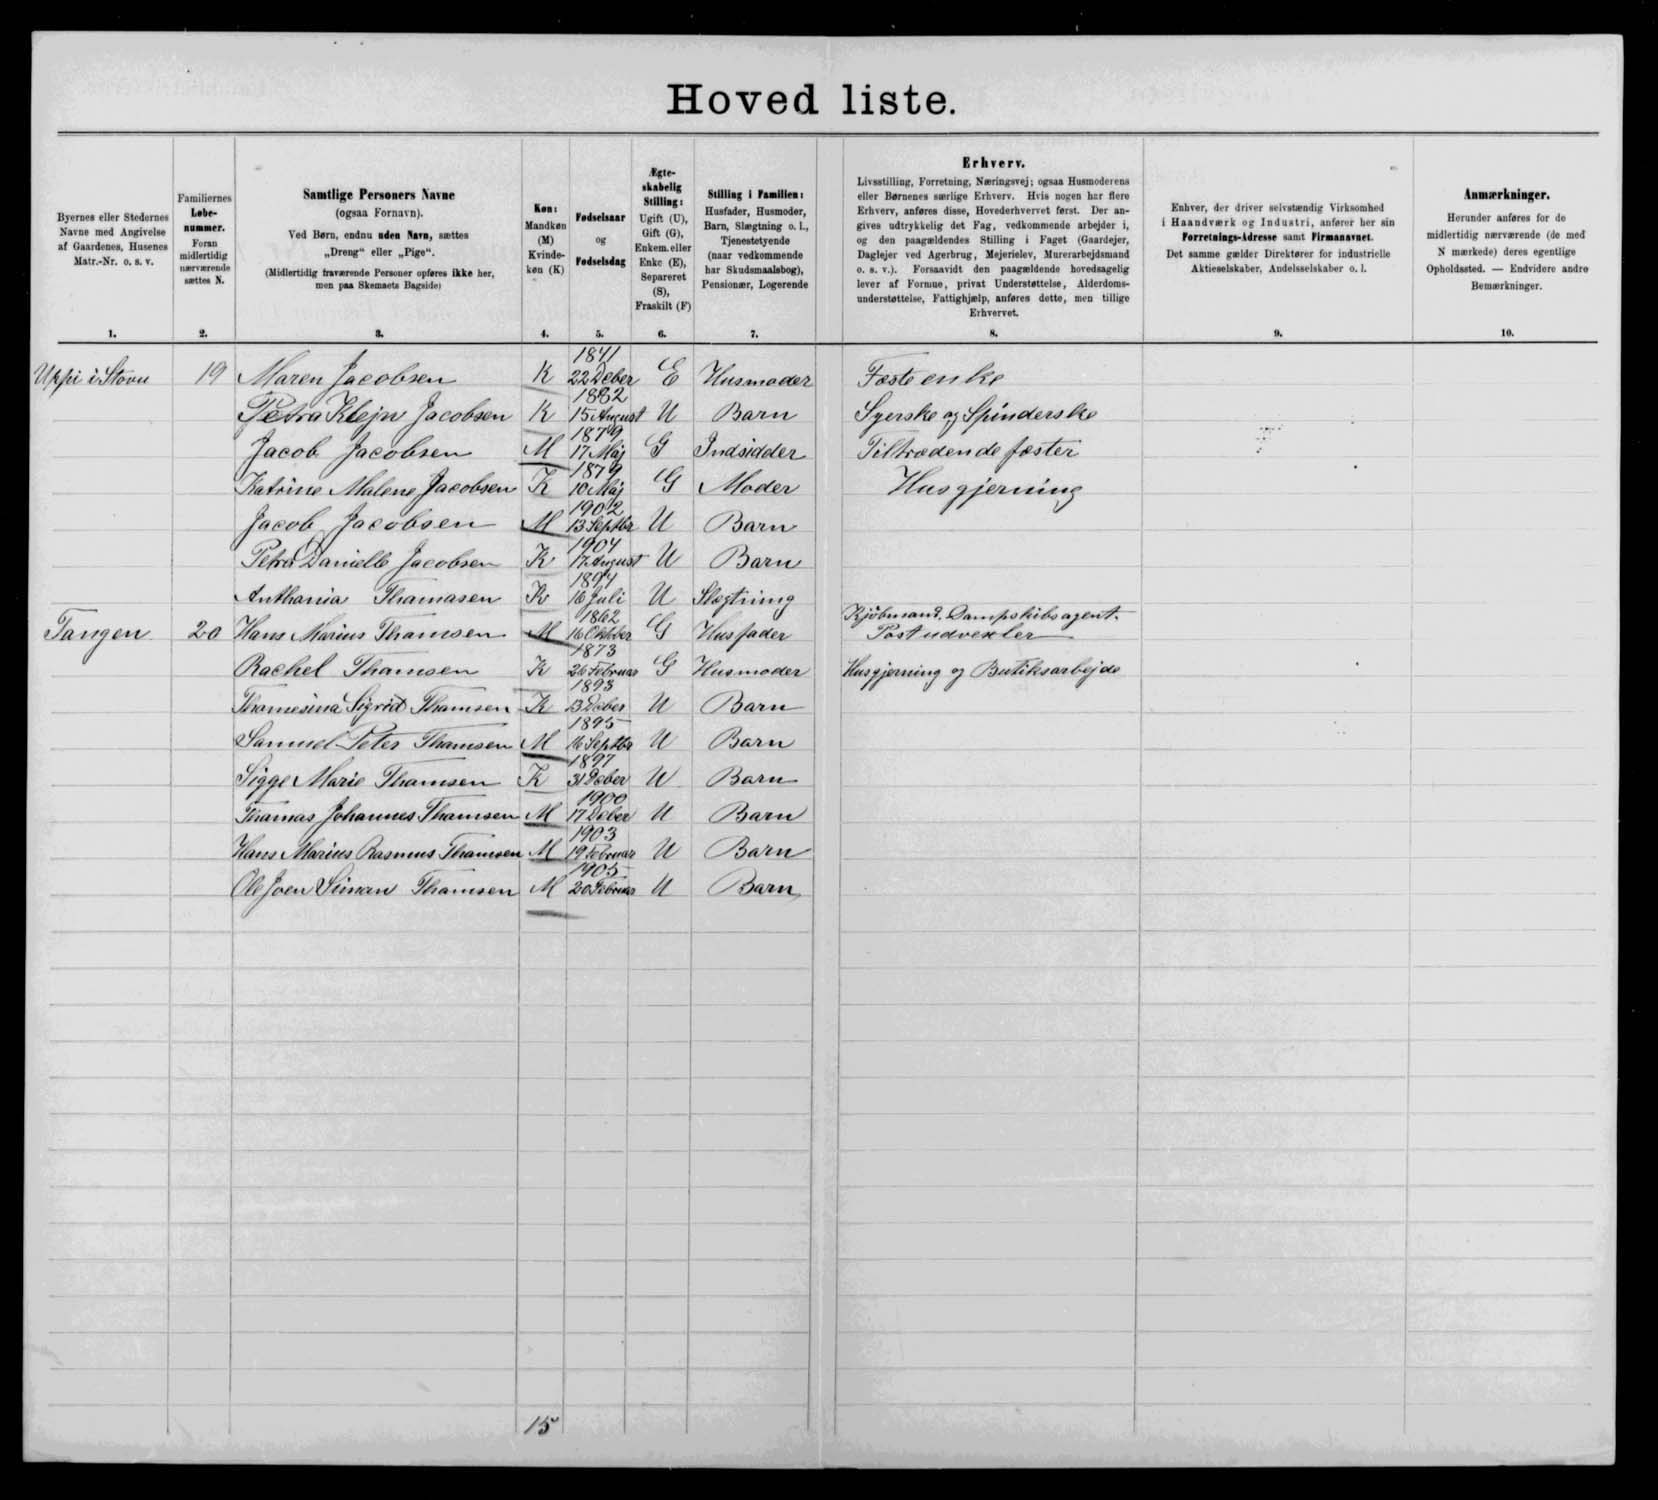 Hoved liste.
Byernes eller Stedernes
Navne med Angivelse
af Gaardenes, Husenes
Matr.-Nr. o. s. v.
Familiernes
Løbe-
nummer.
Foran
midlertidig
nærværende
sættes N.
Samtlige Personers Navne
(ogsaa Fornavn).
Ved Børn, endnu uden Navn, sættes
„Dreng“ eller „Pige“.
(Midlertidig fraværende Personer opføres ikke her,
men paa Skemaets Bagside)
Køn:
Mandkøn
(M)
Kvinde-
køn (K)
Fødselsaar
og
Fødselsdag
Ægte-
skabelig
Stilling:
Ugift (U),
Gift (G),
Enkem. eller
Enke (E),
Separeret
(S),
Fraskilt (F)
Stilling i Familien:
Husfader, Husmoder,
Barn, Slægtning o. l.,
Tjenestetyende
(naar vedkommende
har Skudsmaalsbog),
Pensionær, Logerende
Erhverv.
Livsstilling, Forretning, Næringsvej; ogsaa Husmoderens
eller Børnenes særlige Erhverv. Hvis nogen har flere
Erhverv, anføres disse, Hovederhvervet først. Der an-
gives udtrykkelig det Fag, vedkommende arbejder i,
og den paagældendes Stilling i Faget (Gaardejer,
Daglejer ved Agerbrug, Mejerielev, Murerarbejdsmand
o. s. v.). Forsaavidt den paagældende hovedsagelig
lever af Formue, privat Understøttelse, Alderdoms-
understøttelse, Fattighjælp, anføres dette, men tillige
Erhvervet.
Enhver, der driver selvstændig Virksomhed
i Haandværk og Industri, anfører her sin
Forretnings-Adresse samt Firmanavnet.
Det samme gælder Direktører for industrielle
Aktieselskaber, Andelsselskaber o. l.
Anmærkninger.
Herunder anføres for de
midlertidig nærværende (de med
N mærkede) deres egentlige
Opholdssted. — Endvidere andre
Bemærkninger.
1. 2. 3. 4. 5. 6. 7. 8. 9. 10.
1841
Uppi i Stovu 19 Maren Jacobsen K 22 Dcber E Husmoder Fæsteenke
1882
Petra Klejn Jacobsen K 15 August U Barn Syerske og Spinderske
1879
Jacob Jacobsen M 17 Maj G Indsidder Tiltrædende fæster
1879
Katrine Malene Jacobsen K 10 Maj G Moder Husgjerning
1902
Jacob Jacobsen M 13 Septbr U Barn
1904
Petra Danielle Jacobsen K 17 August U Barn
1894
Anthania Thamasen K 16 Juli U Slægtning
1862 Kjöbmand. Dampskibsagent.
Tangen 20 Hans Marius Thamsen M 16 Oktober G Husfader Postudvexler
1873
Rachel Thamsen K 26 Februar G Husmoder Husgjerning og Butiksarbejde
1893
Thamesina Sigrid Thamsen K 23 Dcber U Barn
1895
Samuel Peter Thamsen M 16 Septbr U Barn
1897
Sigge Marie Thamsen K 31 Dcber U Barn
1900
Thamas Johannes Thamsen M 17 Dcber U Barn
1903
Hans Marius Rasmus Thamsen M 19 Februar U Barn
1905
Ole Joen Siman Thamsen M 20 Februar U Barn
15